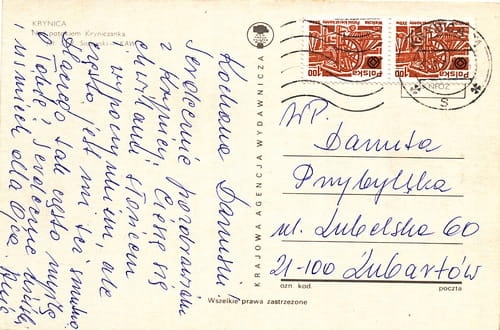 KRYNICA
Nad potokiem Kryniczanka
KAW
Kochana Danusiu!
Serdecznie pozdrawiam
z Krynicy. Cieszę się
chwilami słońcem
i wypoczynkiem, ale
często jest mi też smutno
Dlatego tak często myślę
o Tobie. Serdeczne
i uśmiech dla Ojca.
KRAJOWA AGENCJA WYDAWNICZA
Wszelkie prawa zastrzeżone
Polska 1,00
Polska 1,00
WP.
Danuta
Przybylska
ul. Lubelska 60
21-100 Lubartów
ozn. kod. poczta